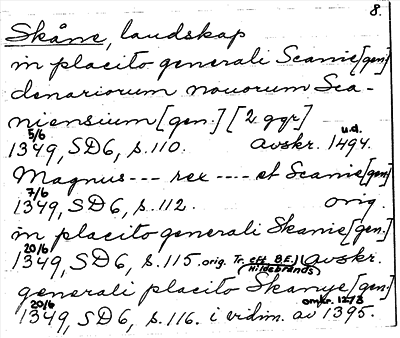 8.
Skåne, landskap
in placito generali Scanie [gen]
denariorum nouorum Sca-
niensium [gen.] [2 ggr]
5/6 u.d.
1349, SD6, s. 110. Avskr. 1494.
Magnus --- rex ---- et Scanie [gen]
7/6
1349, SD6, s. 112. orig.
in placito generali Skanie [gen.]
20/6
1349, SD6, s. 115. orig. Tr. eft. B.E.) Avskr.
Hildebrands
generali placito Skanye [gen]
20/6 omkr. 1273
1349, SD6, s. 116. i vidim. av 1395.